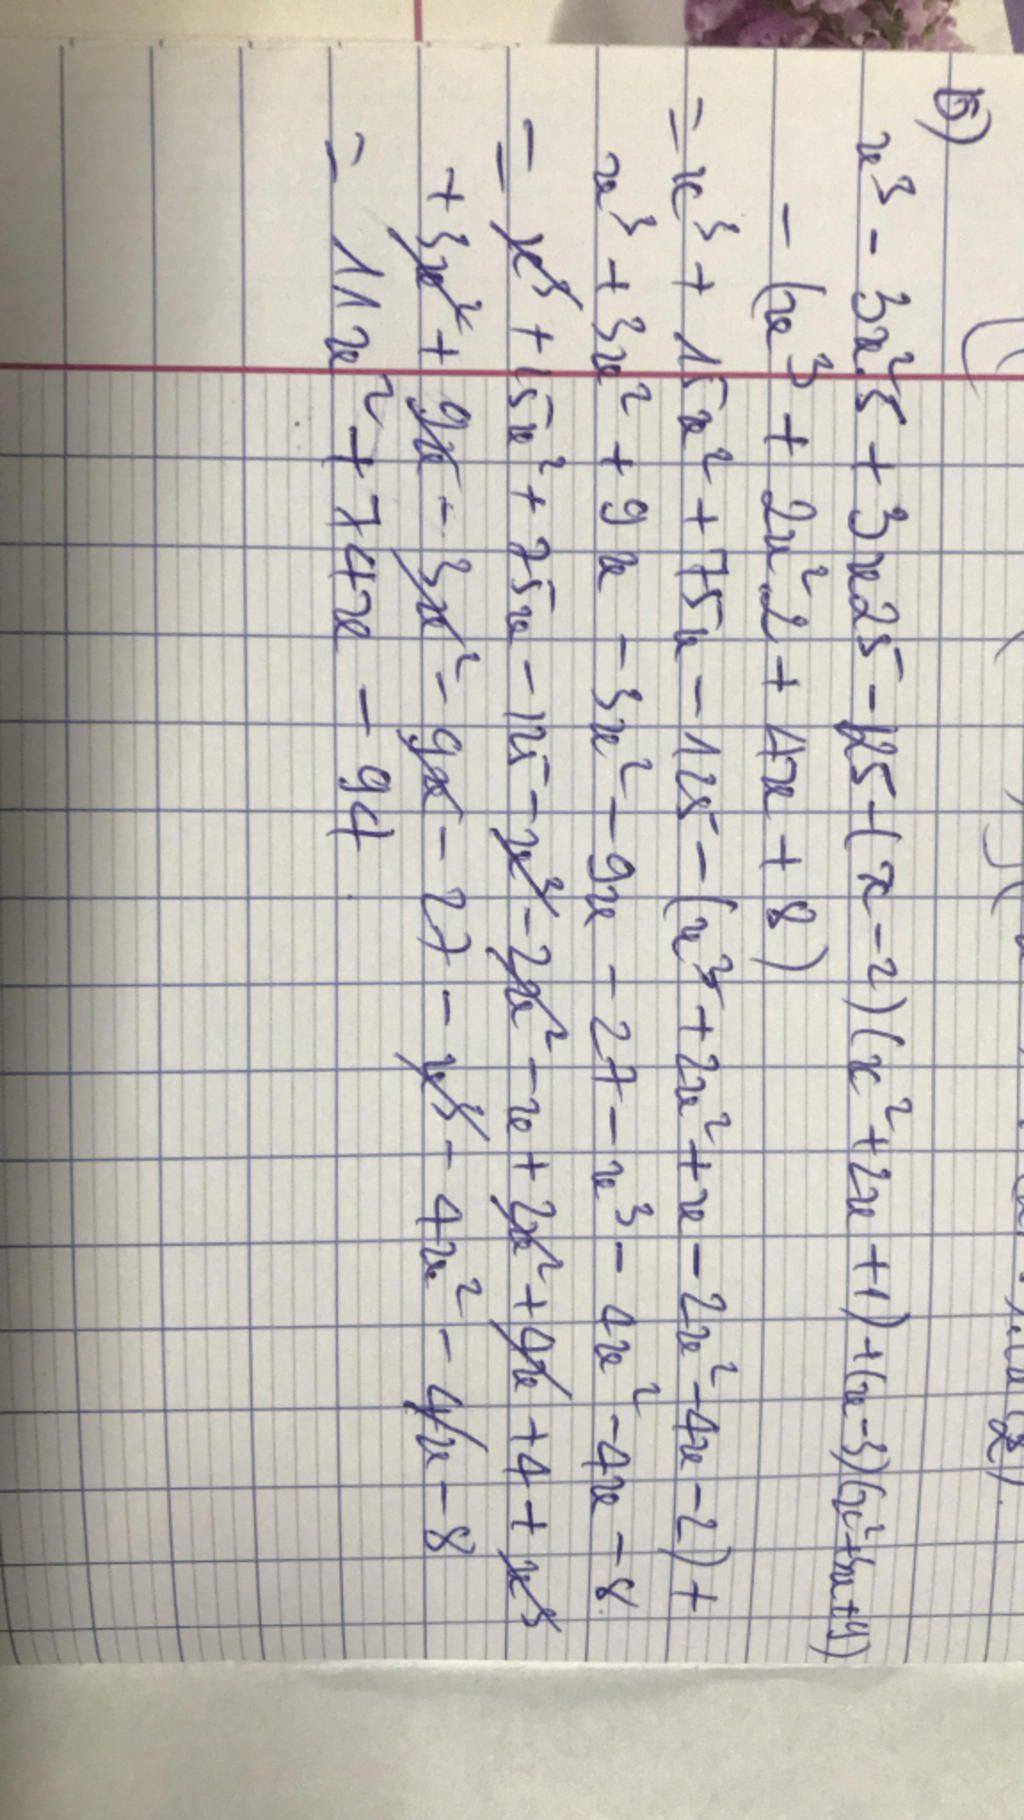 б)
x³ - 3x²5 + 3x25 - 125 - (x - 2)(x² + 2x + 1) + (x - 3)(x² + 3x + 9)
- (x³ + 2x²2 + 4x + 8)
= x³ + 15x² + 75x - 125 - (x³ + 2x² + x - 2x² - 4x - 2) +
x³ + 3x² + 9x - 3x² - 9x - 27 - x³ - 4x² - 4x - 8
= x³ + 15x² + 75x - 125 - x³ - 2x² - x + 2x² + 4x + 4 + x³
+ 3x² + 9x - 3x² - 9x - 27 - x³ - 4x² - 4x - 8
= 11x² + 74x - 94.